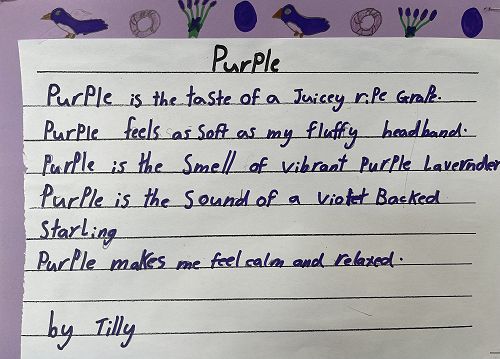 Purple
Purple is the taste of a Juicey ripe Grape.
Purple feels as soft as my fluffy headband.
Purple is the Smell of vibrant Purple Lavernder
Purple is the Sound of a violet Backed
Starling
Purple makes me feel calm and relaxed.
by Tilly